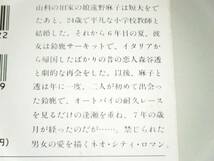 山科の旧家の娘遠野麻子は短大をで
あと、24歳で平凡な小学校教師と
結婚した。それから6年目の夏、彼
女は鈴鹿サーキットで、イタリアか
ら帰国したばかりの昔の恋人森谷透
と劇的な再会をした。以後、麻子と
透は年に一度、二人が初めて出会っ
た鈴鹿で、オートバイの耐久レース
を口実にしのび逢瀬を重ね、7年の歳
月が経ったのだが……。禁じられた
男女の愛を描くネオ・シティ・ロマン。
22
円)